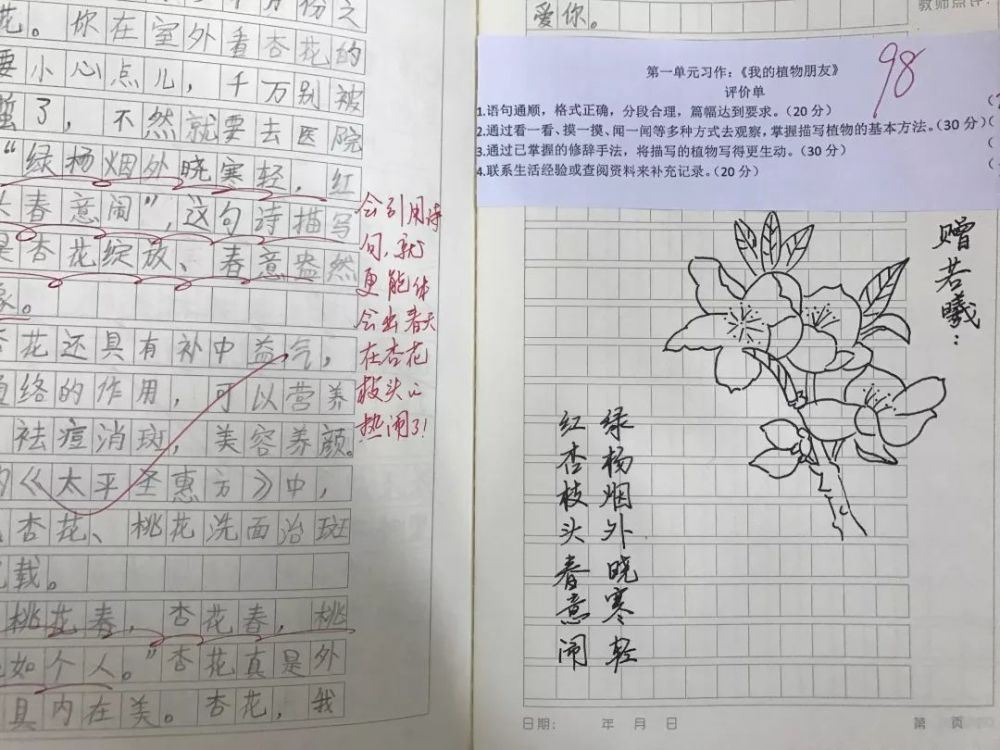 花。你在室外看杏花的
要小心点儿，千万别被
了，不然就要去医院
“绿杨烟外晓寒轻，红
头春意闹”，这句诗描写
是杏花绽放、春意盎然
象。
杏花还具有补中益气，
络的作用，可以营养
祛痘消斑，美容养颜。
的《太平圣惠方》中，
杏花、桃花洗面治斑
载。
桃花春，杏花春，桃
如个人。”杏花真是外
具内在美。杏花，我
会引用诗
句，就
更能体
会出春天
在杏花
枝头的
热闹了！
爱你。
教师点评：
第一单元习作：《我的植物朋友》
评价单
98
1.语句通顺，格式正确，分段合理，篇幅达到要求。（20 分）
2.通过看一看、摸一摸、闻一闻等多种方式去观察，掌握描写植物的基本方法。（30 分）
3.通过已掌握的修辞手法，将描写的植物写得更生动。（30 分）
4.联系生活经验或查阅资料来补充记录。（20 分）
赠若曦：
绿杨烟外晓寒轻
红杏枝头春意闹
日期： 年 月 日
第 页